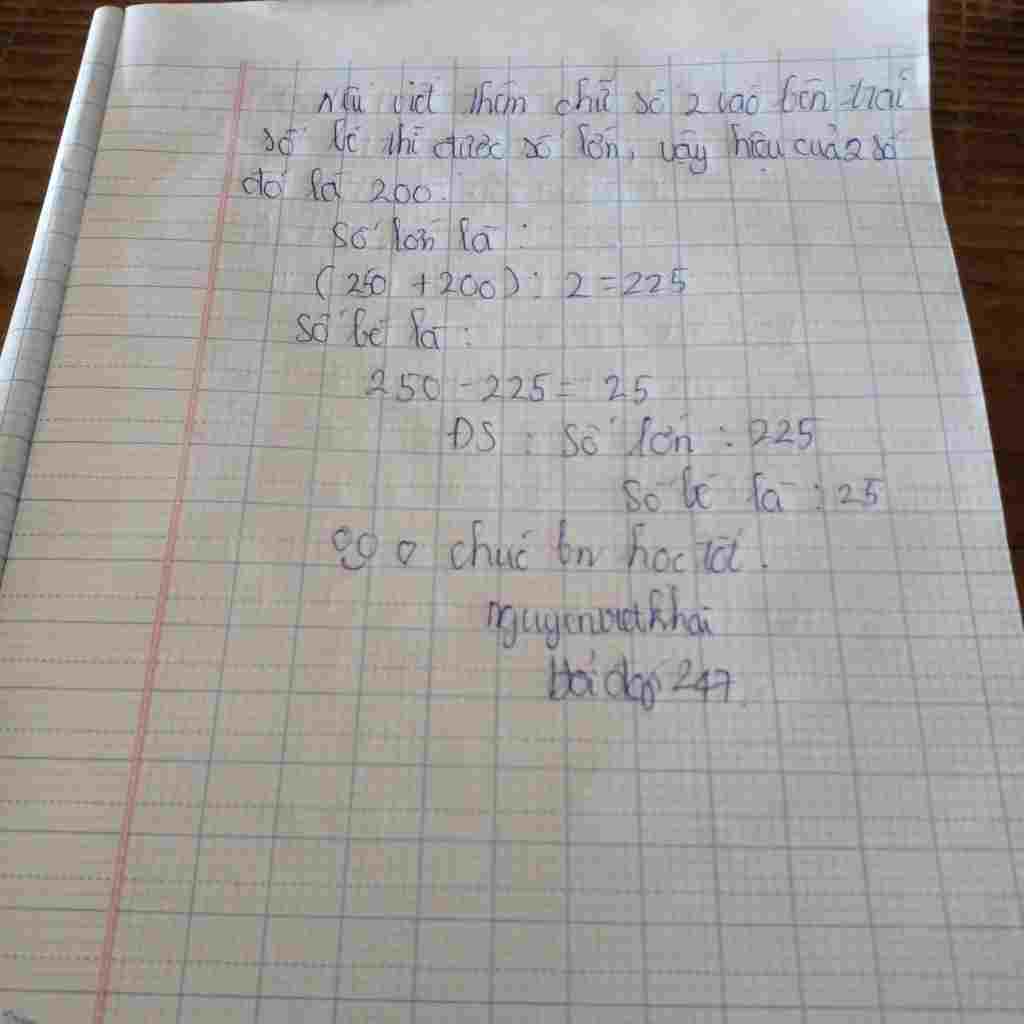 Nếu viết thêm chữ số 2 vào bên trái
số bé thì được số lớn, vậy hiệu của 2 số
đó là 200.
Số lớn là :
(250 + 200) : 2 = 225
Số bé là :
250 - 225 = 25
ĐS : Số lớn : 225
Số bé là : 25
chúc bn học tốt.
nguyenvietkhai
hỏi đáp 247